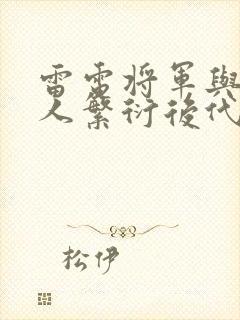 雷雷將軍與
人繁衍後代
松伊